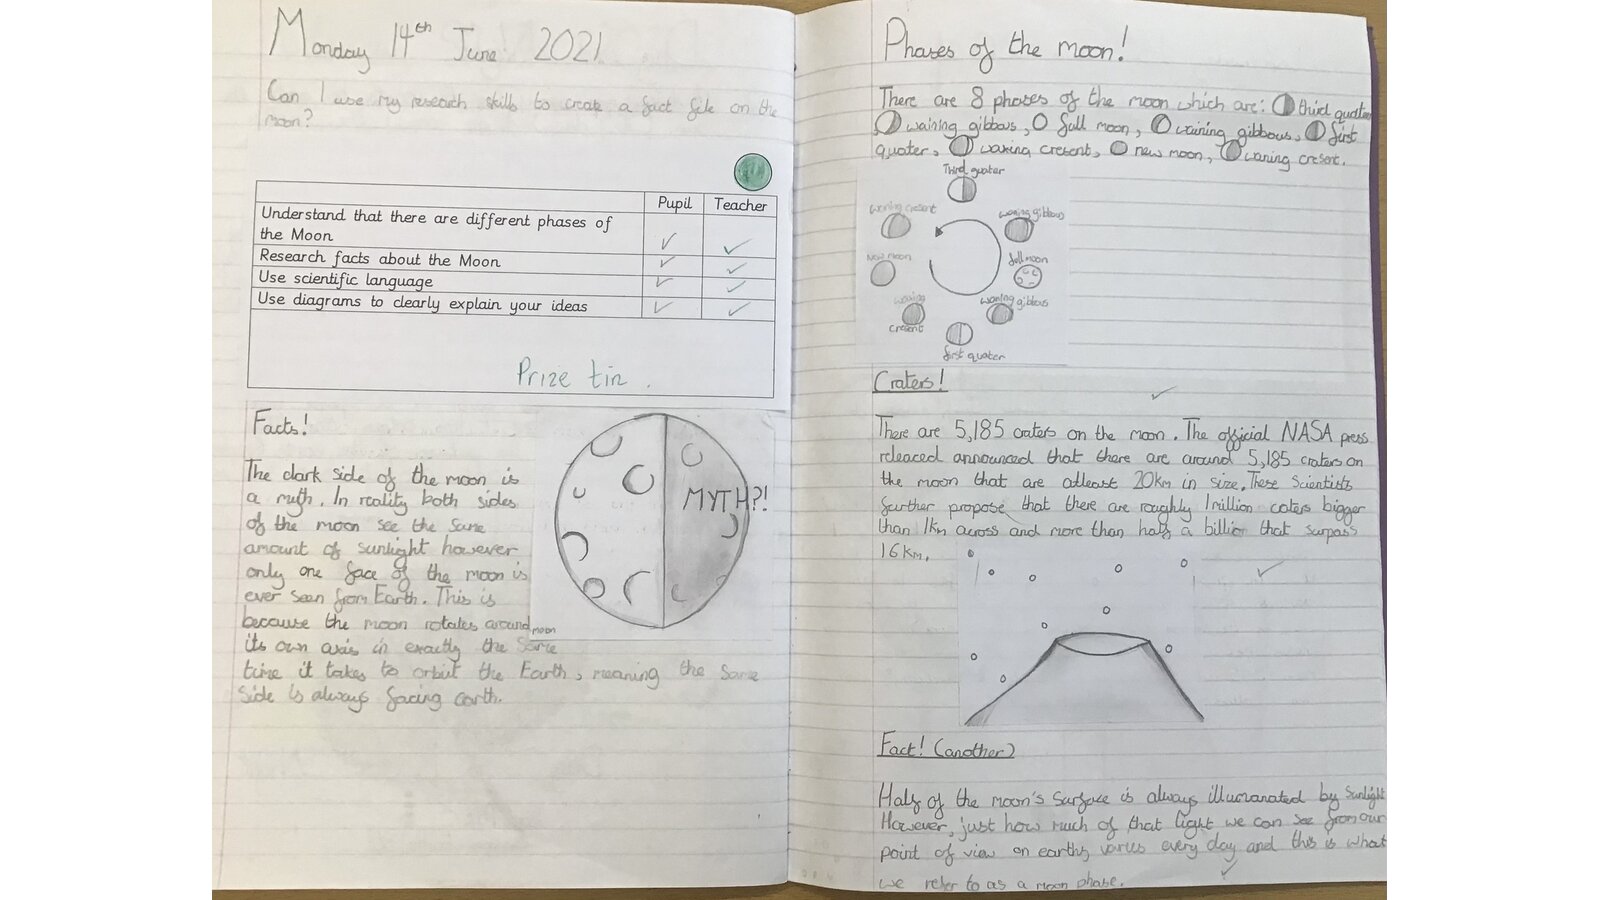 Monday 14th June 2021
Can I use my research skills to create a fact file on the
moon?
Pupil Teacher
Understand that there are different phases of
the Moon
Research facts about the Moon
Use scientific language
Use diagrams to clearly explain your ideas
Prize tin.
Facts!
The dark side of the moon is
a myth. In reality both sides
of the moon see the same
amount of sunlight however
only one face of the moon is
ever seen from Earth. This is
because the moon rotates around
its own axis in exactly the same
time it takes to orbit the Earth, meaning the same
side is always facing earth.
MYTH?!
moon
Phases of the moon!
There are 8 phases of the moon which are: third quater
waining gibbous, full moon, waining gibbous, first
quater, waxing cresent, new moon, waning cresent.
Third quater
waning cresent
waning gibbous
New moon
full moon
waxing
cresent
waning gibbous
first quater
Craters!
There are 5,185 craters on the moon. The official NASA press
releaced announced that there are around 5,185 craters on
the moon that are atleast 20km in size. These Scientists
further propose that there are roughly 1 million caters bigger
than 1km across and more than half a billion that surpass
16km.
Fact! (another)
Half of the moon's surface is always illumanated by sunlight
However, just how much of that light we can see from our
point of view on earth, varies every day and this is what
we refer to as a moon phase.